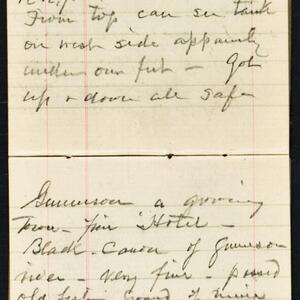 From top can see tank
on west side apparently
under our feet - Got
up & down all safe
Gunnison a growing
town - fine Hotel -
Black - Canon of Gunnison
river - very fine - passed
old